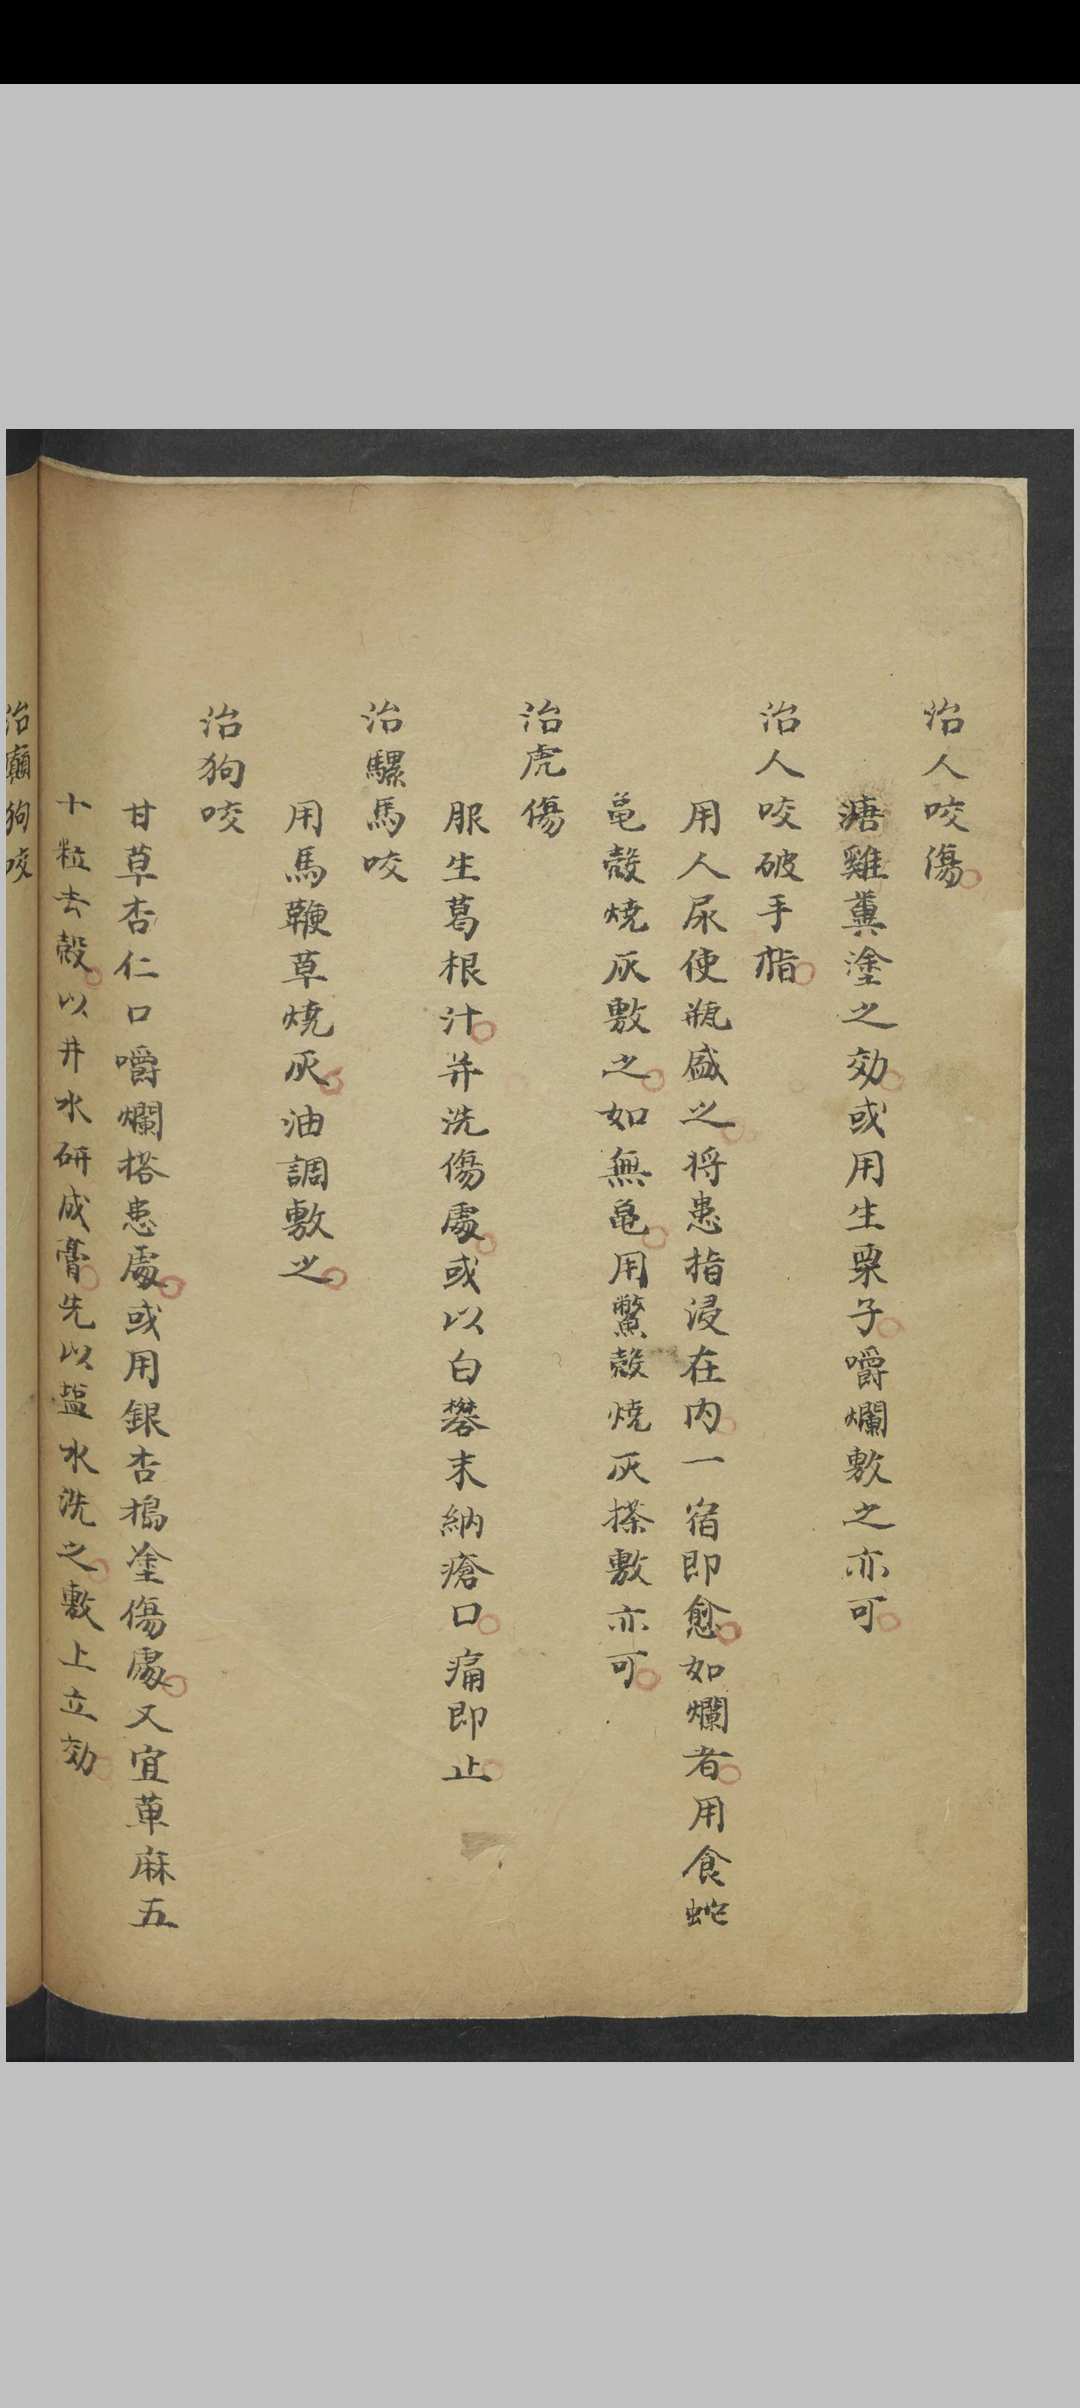 治人咬傷
溏雞糞塗之効或用生栗子嚼爛敷之亦可
治人咬破手指
用人尿使瓶盛之将患指浸在内一宿即愈如爛者用食蛇
龟殼燒灰敷之如無龟用鱉殼燒灰搽敷亦可
治虎傷
服生葛根汁并洗傷處或以白礬末納瘡口痛即止
治騾馬咬
用馬鞭草燒灰油調敷之
治狗咬
甘草杏仁口嚼爛搭患處或用銀杏搗塗傷處又宜萆麻五
十粒去殼以井水研成膏先以盐水洗之敷上立効
治癲狗咬